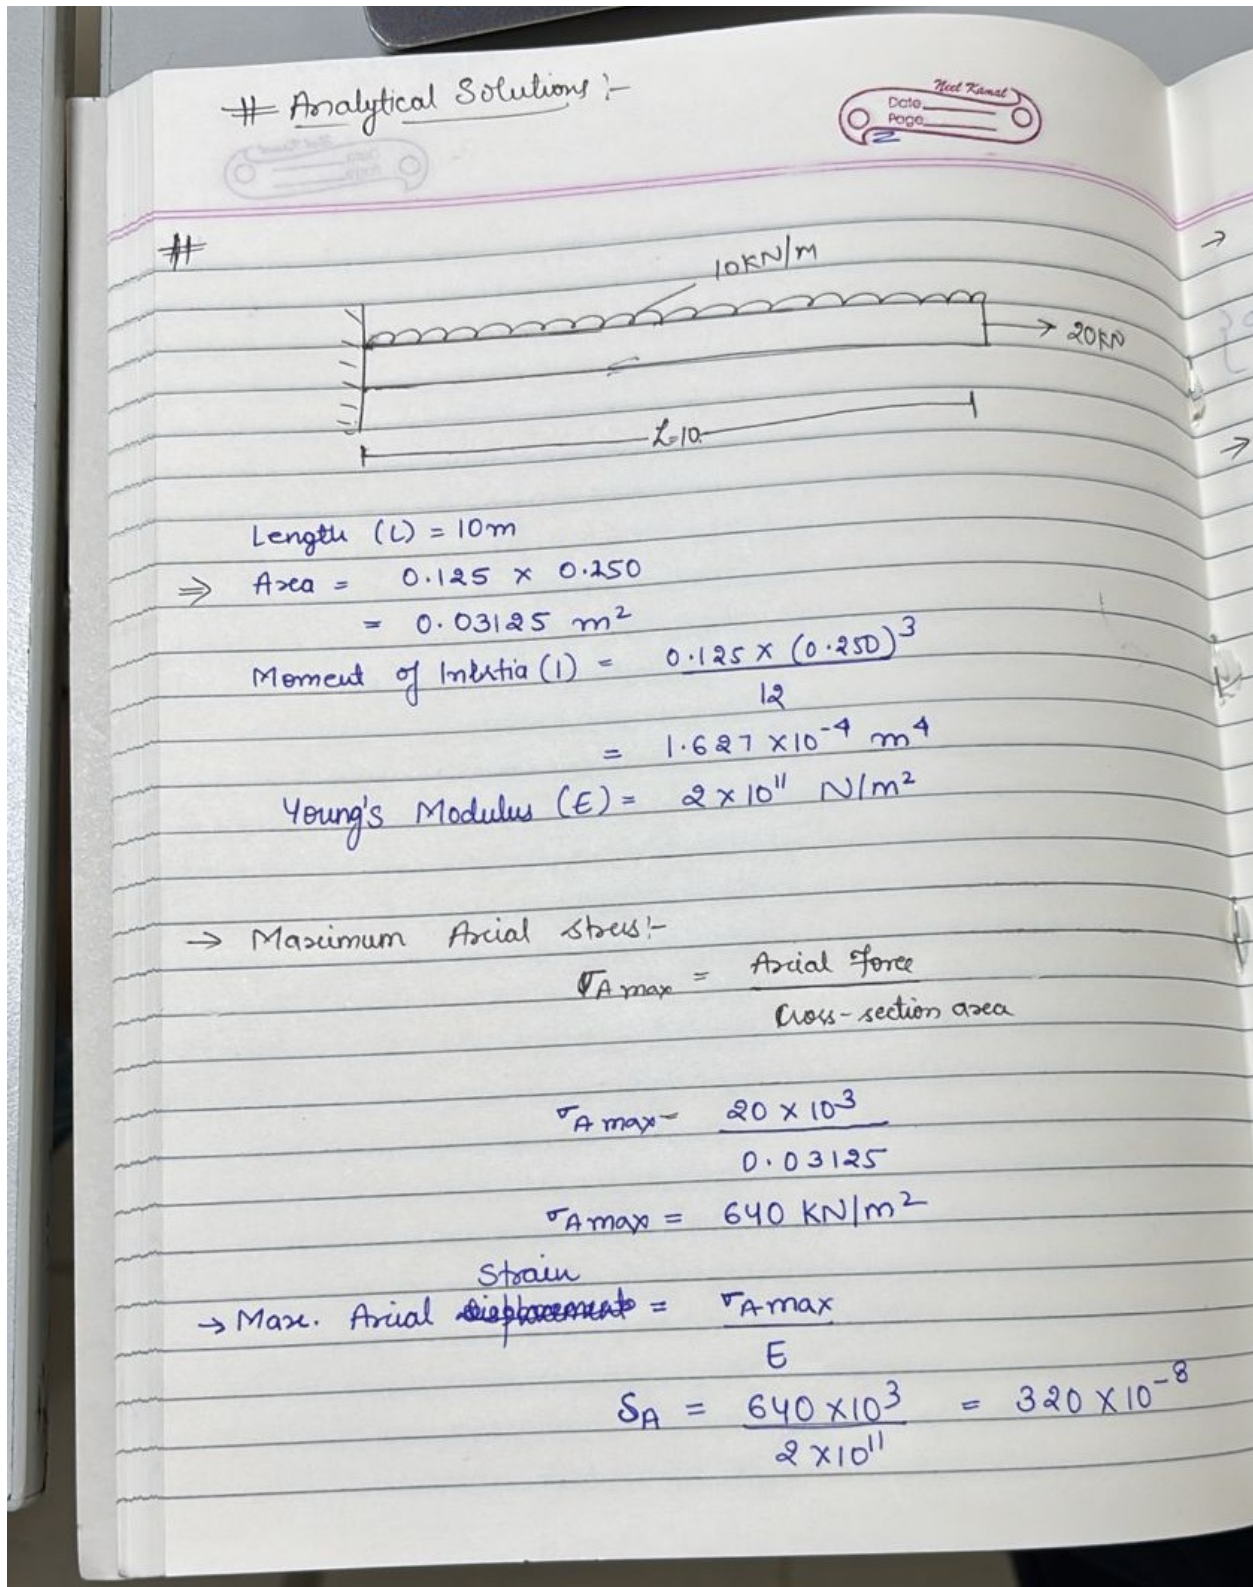 # Analytical Solutions :-
Neel Kamal
Date
Page
2
#
10KN/m
20KN
L=10.
Length (L) = 10m
⇒ Area = 0.125 × 0.250
= 0.03125 m²
Moment of Inertia (I) = 0.125 × (0.250)³
12
= 1.627 × 10⁻⁴ m⁴
Young's Modulus (E) = 2 × 10¹¹ N/m²
→ Maximum Axial stress:-
σA max = Axial Force
Cross-section area
σA max = 20 × 10³
0.03125
σA max = 640 KN/m²
Strain
→ Max. Axial displacement = σA max
E
SA = 640 × 10³ = 320 × 10⁻⁸
2 × 10¹¹